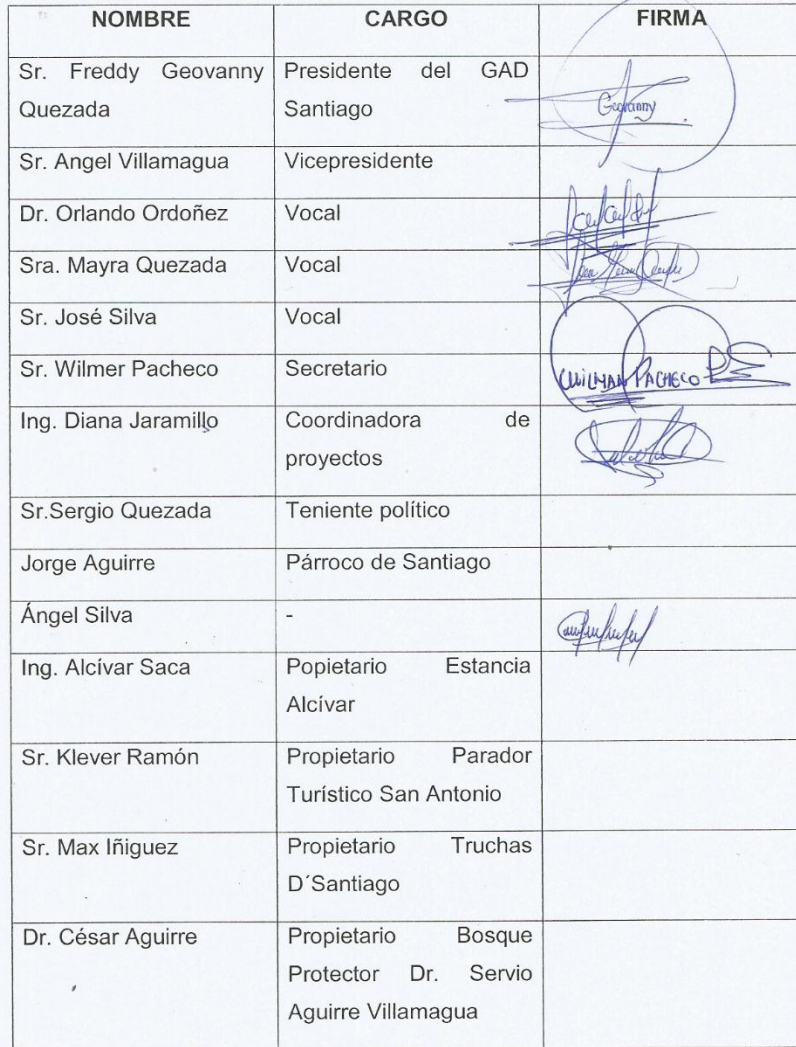 NOMBRE CARGO FIRMA
Sr. Freddy Geovanny Presidente del GAD
Quezada Santiago Geovanny
Sr. Angel Villamagua Vicepresidente
Dr. Orlando Ordoñez Vocal
Sra. Mayra Quezada Vocal
Sr. José Silva Vocal
Sr. Wilmer Pacheco Secretario WILMAN PACHECO
Ing. Diana Jaramillo Coordinadora de
proyectos
Sr.Sergio Quezada Teniente político
Jorge Aguirre Párroco de Santiago
Ángel Silva -
Ing. Alcívar Saca Popietario Estancia
Alcívar
Sr. Klever Ramón Propietario Parador
Turístico San Antonio
Sr. Max Iñiguez Propietario Truchas
D´Santiago
Dr. César Aguirre Propietario Bosque
Protector Dr. Servio
Aguirre Villamagua